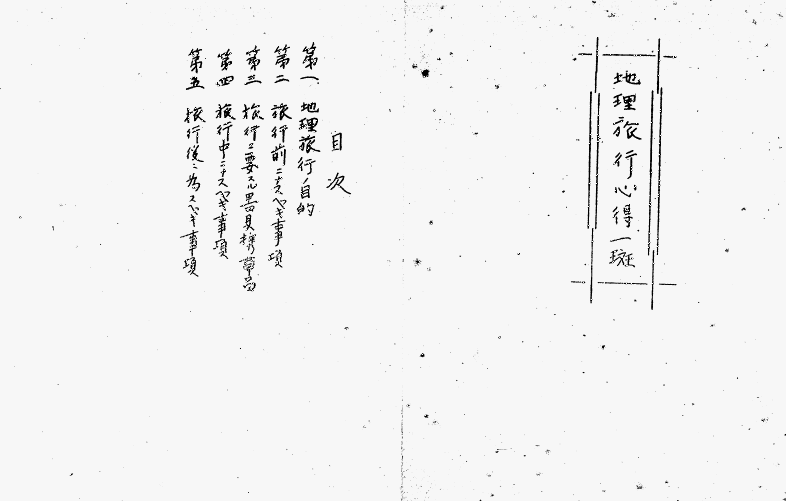 地理旅行心得一斑
目次
第一 地理旅行ノ目的
第二 旅行前ニナスベキ事項
第三 旅行ニ要スル器具携帯品
第四 旅行中ニナスベキ事項
第五 旅行後ニ為スベキ事項